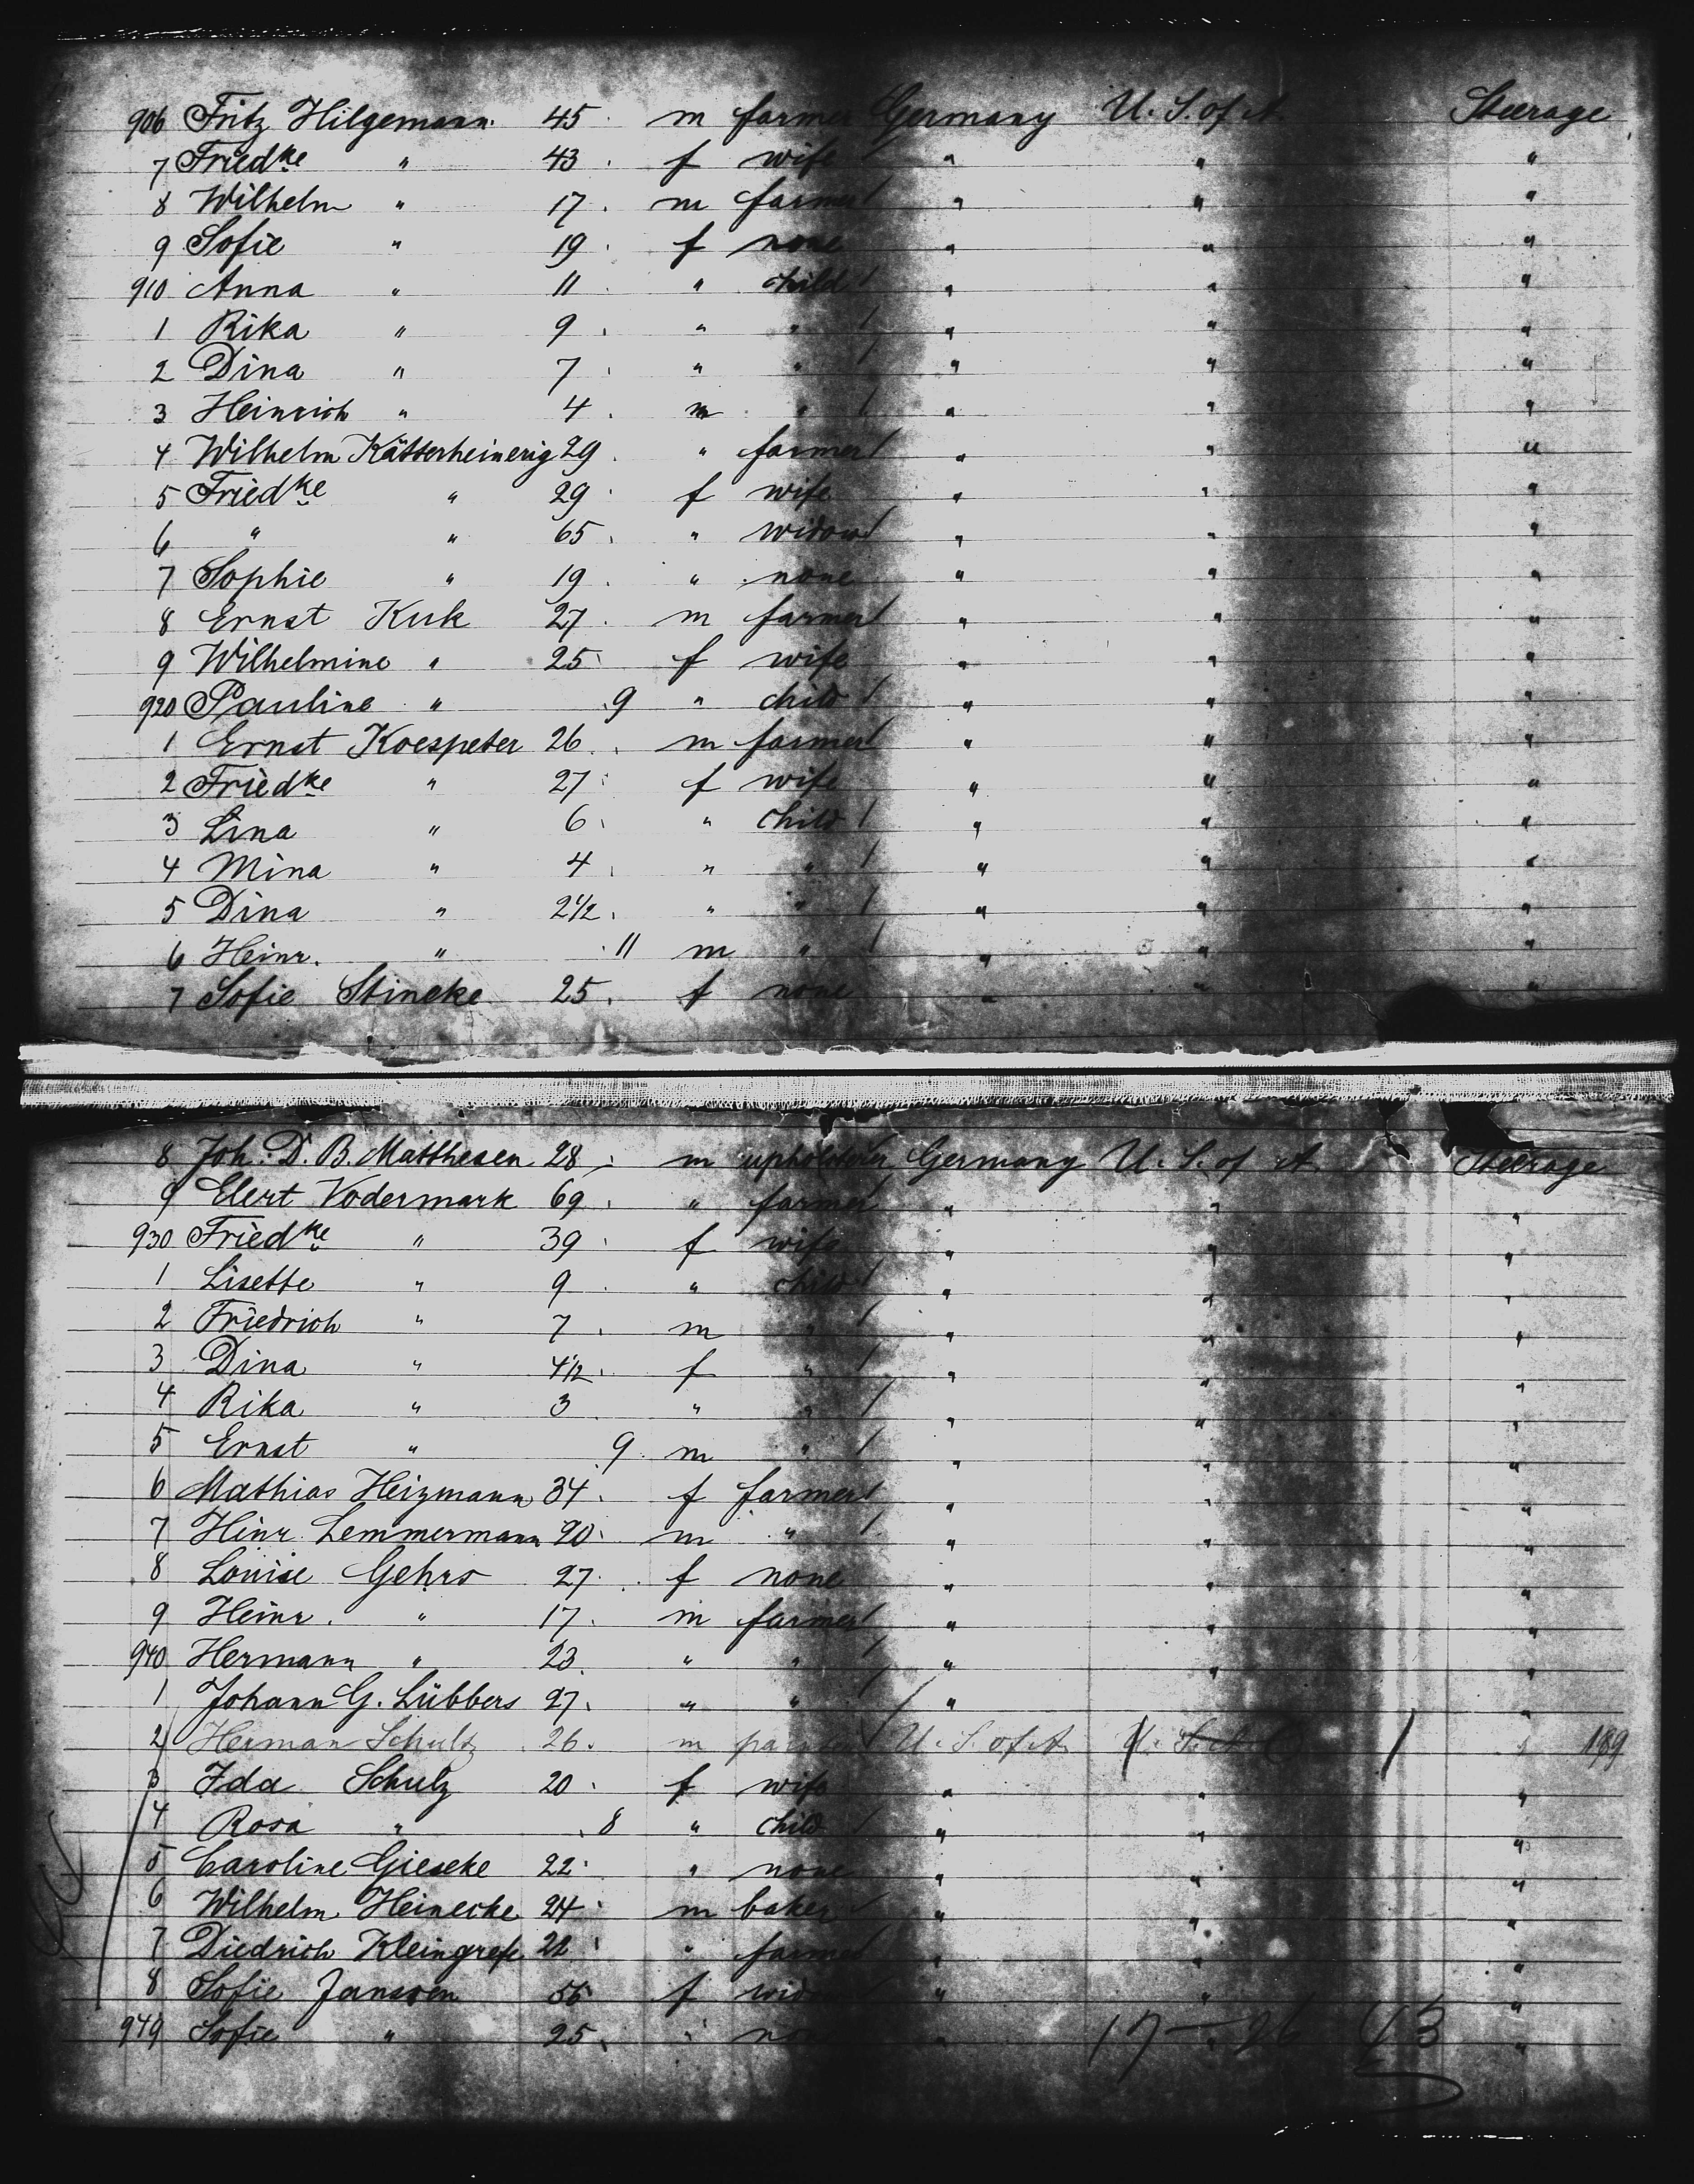 906 Fritz Hilgemann 45 m farmer Germany U. S. of A. Steerage
7 Friedke " 43 f wife " " "
8 Wilhelm " 17 m farmer " " "
9 Sofie " 19 f none " " "
910 Anna " 11 " child " " "
1 Rika " 9 " " " " "
2 Dina " 7 " " " " "
3 Heinrich " 4 m " " " "
4 Wilhelm Kätterheinerig 29 " farmer " " "
5 Friedke " 29 f wife " " "
6 " " 65 " widow " " "
7 Sophie " 19 " none " " "
8 Ernst Kuk 27 m farmer " " "
9 Wilhelmine " 25 f wife " " "
920 Pauline " 9 " child " " "
1 Ernst Koespeter 26 m farmer " " "
2 Friedke " 27 f wife " " "
3 Lina " 6 " child " " "
4 Mina " 4 " " " " "
5 Dina " 2 1/2 " " " " "
6 Heinr. " 11 m " " " "
7 Sofie Stineke 25 f none " " "
8 Joh. D. B. Matthesen 28 m upholsterer Germany U. S. of A. Steerage
9 Elert Vodermark 69 " farmer " " "
930 Friedke " 39 f wife " " "
1 Lisette " 9 " child " " "
2 Friedrich " 7 m " " " "
3 Dina " 4 1/2 f " " " "
4 Rika " 3 " " " " "
5 Ernst " 9 m " " " "
6 Mathias Heizmann 34 f farmer " " "
7 Hinr. Lemmermann 20 m " " " "
8 Louise Gehrs 27 f none " " "
9 Heinr. " 17 m farmer " " "
940 Hermann " 23 " " " " "
1 Johann G. Lübbers 27 " " " "
2 Herman Schultz 26 m U. S. of A. U. S. of A. " 189
3 Ida Schulz 20 f wife " " "
4 Rosa " 8 " child " " "
5 Caroline Gieseke 22 " none " " "
6 Wilhelm Heinecke 24 m baker " " "
7 Diedrich Kleingrefe 21 " farmer " " "
8 Sofie Janssen 55 f widow " " "
949 Sofie " 25 " " " "
17 — 26 43